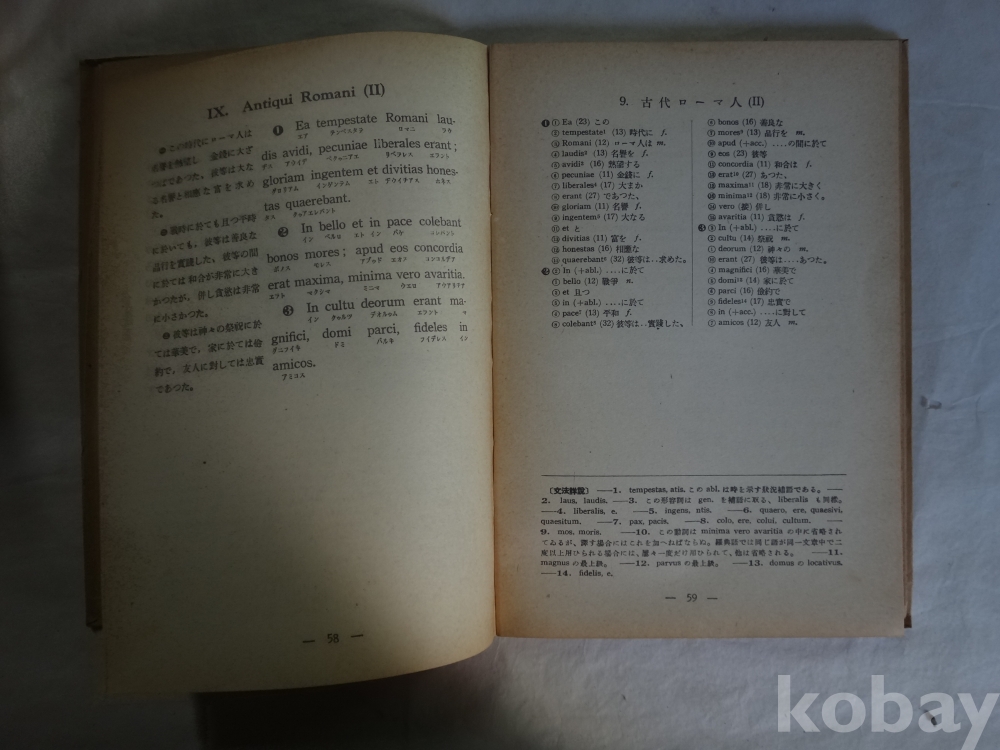 IX. Antiqui Romani (II)
❶ この時代にローマ人は
名譽を熱望し 金錢に大ざ
つぱであつた。彼等は大な
る名譽と相應な富を求め
た。
❷ 戰時に於ても且つ平時
に於いても、彼等は善良な
品行を實踐した、彼等の間
に於ては和合が非常に大き
かつたが、併し貪慾は非常
に小さかつた。
❸ 彼等は神々の祭祝に於
ては華美で、家に於ては儉
約で、友人に對しては忠實
であつた。
❶ Ea tempestate Romani lau-
エア テンペスタテ ロマニ ラウ
dis avidi, pecuniae liberales erant;
ディス アウイデイ ペクニアエ リベラレス エラント
gloriam ingentem et divitias hones-
グロリアム インゲンテム エト デウイチアス ホネス
tas quaerebant.
タス クゥアエレバント
❷ In bello et in pace colebant
イン ベルロ エト イン パケ コレバント
bonos mores; apud eos concordia
ボノス モレス アプゥド エオス コンコルデア
erat maxima, minima vero avaritia.
エラト マクシマ ミニマ ウエロ アウアリチア
❸ In cultu deorum erant ma-
イン クゥルツ デオルゥム エラント マ
gnifici, domi parci, fideles in
グニフイキ ドミ パルキ フイデレス イン
amicos.
アミコス
— 58 —
9. 古代ローマ人 (II)
❶ ① Ea (23) この
② tempestate¹ (13) 時代に f.
③ Romani (12) ローマ人は m.
④ laudis² (13) 名譽を f.
⑤ avidi³ (16) 熱望する
⑥ pecuniae (11) 金錢に f.
⑦ liberales⁴ (17) 大まか
⑧ erant (27) であつた、
⑩ gloriam (11) 名譽 f.
⑨ ingentem⁵ (17) 大なる
⑪ et と
⑬ divitias (11) 富を f.
⑫ honestas (16) 相應な
⑭ quaerebant⁶ (32) 彼等は..求めた。
❷ ② In (+abl.) ....に於て
① bello (12) 戰爭 n.
③ et 且つ
⑤ in (+abl.) ....に於て
④ pace⁷ (13) 平和 f.
⑧ colebant⁸ (32) 彼等は..實踐した、
⑥ bonos (16) 善良な
⑦ mores⁹ (13) 品行を m.
⑩ apud (+acc.) ....の間に於て
⑨ eos (23) 彼等
⑪ concordia (11) 和合は f.
⑬ erat¹⁰ (27) あつた、
⑫ maxima¹¹ (18) 非常に大きく
⑯ minima¹² (18) 非常に小さく。
⑭ vero (接) 併し
⑮ avaritia (11) 貪慾は f.
❸ ③ In (+abl.) ....に於て
② cultu (14) 祭祝 m.
① deorum (12) 神々の m.
⑩ erant (27) 彼等は....あつた。
④ magnifici (16) 華美で
⑤ domi¹³ (14) 家に於て
⑥ parci (16) 儉約で
⑨ fideles¹⁴ (17) 忠實で
⑧ in (+acc.) ....に對して
⑦ amicos (12) 友人 m.
〔文法註說〕 ——1. tempestas, atis. この abl. は時を示す狀況補語である。——
2. laus, laudis. ——3. この形容詞は gen. を補語に取る、liberalis も同樣。
——4. liberalis, e. ——5. ingens, ntis. ——6. quaero, ere, quaesivi,
quaesitum. ——7. pax, pacis. ——8. colo, ere, colui, cultum. ——
9. mos, moris. ——10. この動詞は minima vero avaritia の中に省略され
てゐるが、譯す場合にはこれを加へねばならぬ。羅典語では同じ語が同一文章中で二
度以上用ひられる場合には、屢々一度だけ用ひられて、他は省略される。 ——11.
magnus の最上級。 ——12. parvus の最上級。 ——13. domus の locativus,
——14. fidelis, e.
— 59 —
kobay